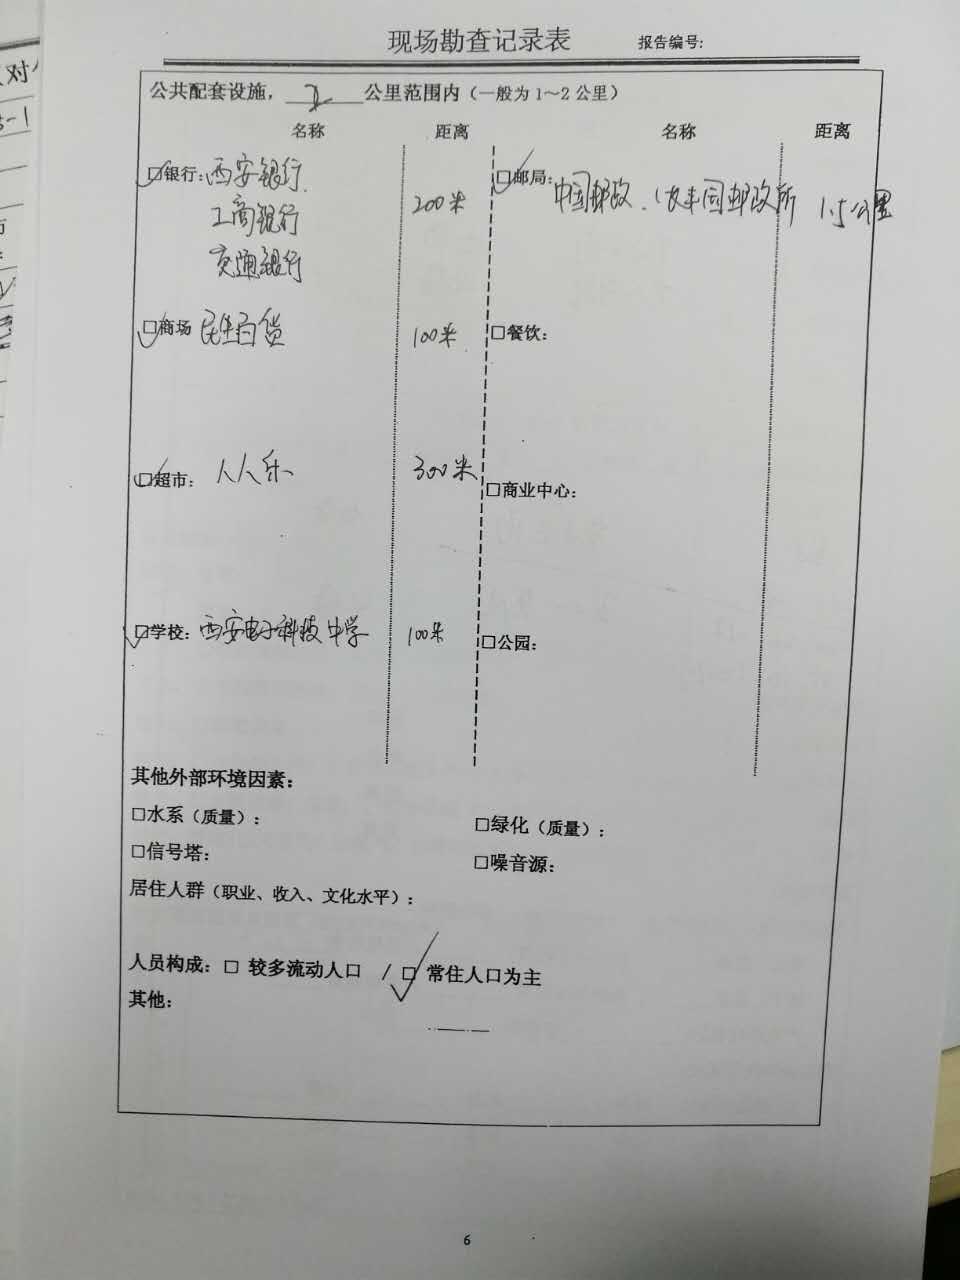 现场勘查记录表 报告编号:
公共配套设施，2公里范围内（一般为1～2公里）
名称 距离 名称 距离
□银行: 西安银行 200米 □邮局: 中国邮政（丰园邮政所 1.5公里
工商银行
交通银行
□商场 民生百货 100米 □餐饮:
□超市: 人人乐 300米 □商业中心:
□学校: 西安电子科技中学 100米 □公园:
其他外部环境因素:
□水系（质量）: □绿化（质量）:
□信号塔: □噪音源:
居住人群（职业、收入、文化水平）:
人员构成: □ 较多流动人口 / □ 常住人口为主
其他:
6